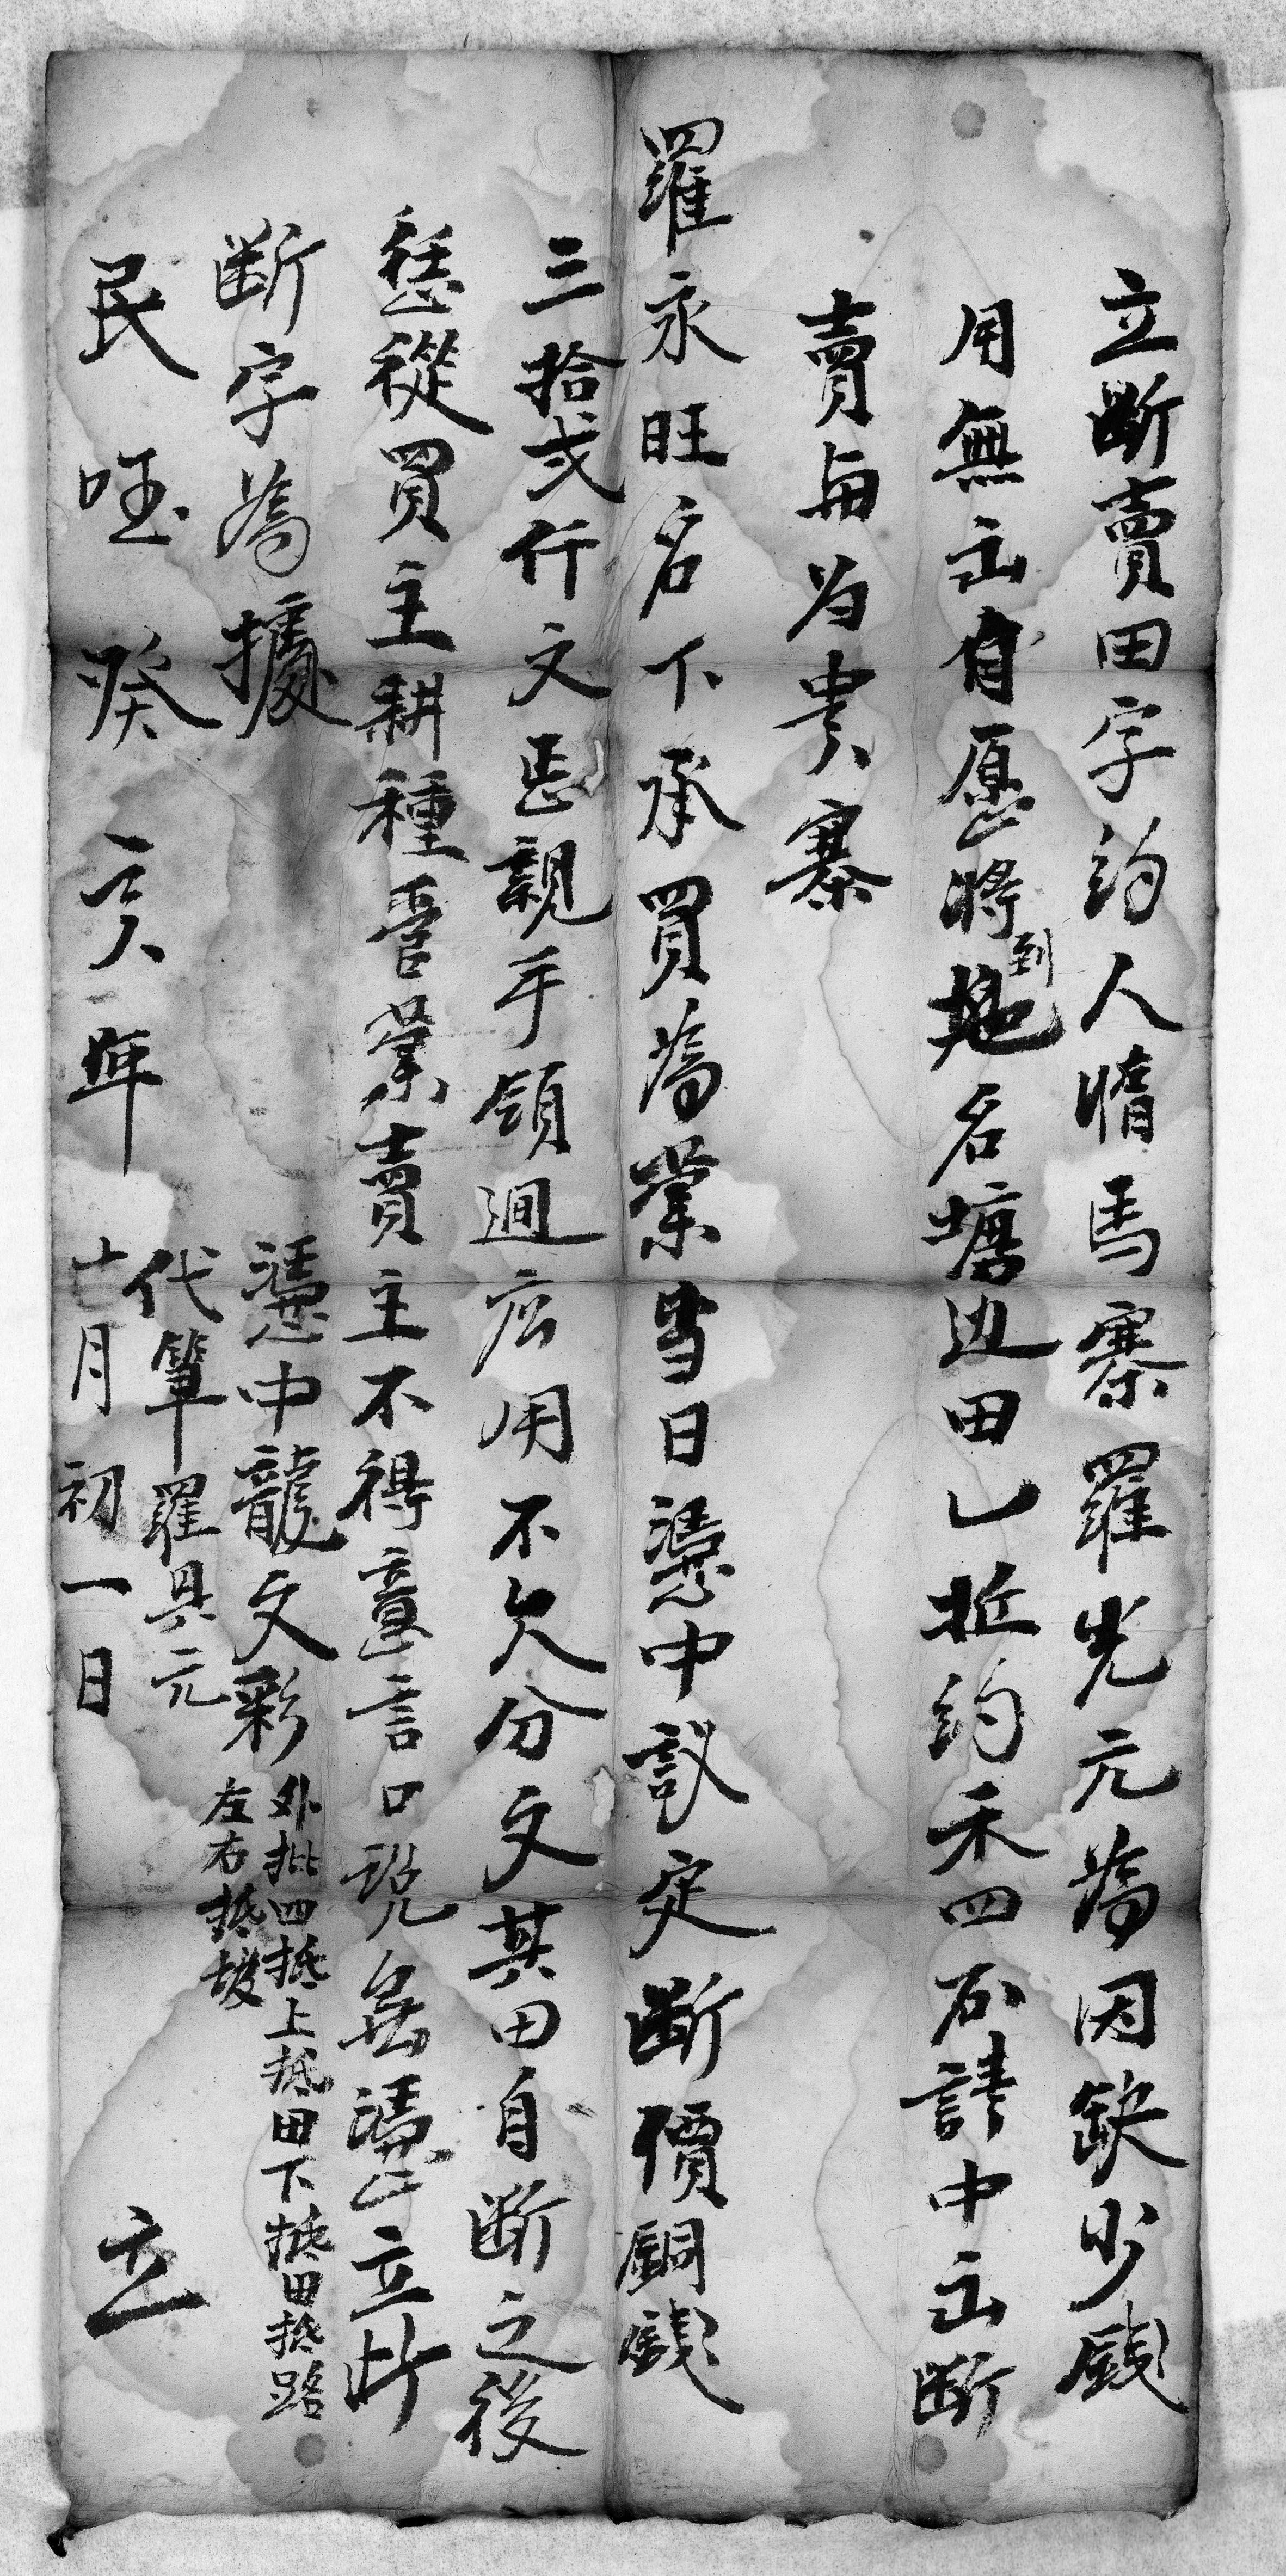 立斷賣田字約人惰馬寨羅光元為因缺少錢
用無出自愿將到地名塘边田乚坵約禾四石請中出断
賣与为贵寨
羅永旺名下承買為業当日憑中议定斷價銅錢
三拾弍仟文正親手領迴应用不欠分文其田自断之後
恁從買主耕種管業賣主不得意言口説無憑立此
断字為據
憑中龍文彩
外批四抵上抵田下抵田抵路
左右抵坡
代筆羅具元
民国癸亥年七月初一日立